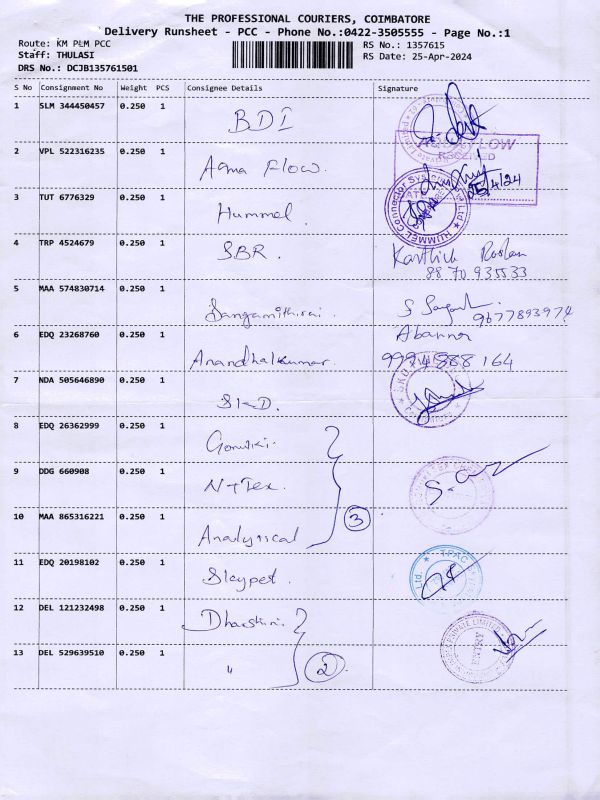 THE PROFESSIONAL COURIERS, COIMBATORE
Delivery Runsheet - PCC - Phone No.:0422-3505555 - Page No.:1
Route: KM PLM PCC
Staff: THULASI
DRS No.: DCJB135761501
RS No.: 1357615
RS Date: 25-Apr-2024
S No Consignment No Weight PCS Consignee Details Signature
1 SLM 344450457 0.250 1 BDI
2 VPL 522316235 0.250 1 Aqua Flow. RECEIVED 25/4/24
3 TUT 6776329 0.250 1 Hummel. HUMMEL Connector Systems
4 TRP 4524679 0.250 1 SBR. Karthick
88 70 935533
5 MAA 574830714 0.250 1 Sangamithirai. 9677893974
6 EDQ 23268760 0.250 1 Anandhakumar. 9994888 164
7 NDA 505646890 0.250 1 SKD.
8 EDQ 26362999 0.250 1
9 DDG 660908 0.250 1 N+Tex.
3
10 MAA 865316221 0.250 1 Analytical
11 EDQ 20198102 0.250 1 TPAC Ltd.
12 DEL 121232498 0.250 1 Dharshini PRIVATE LIMITED ENTRY
13 DEL 529639510 0.250 1 " 2